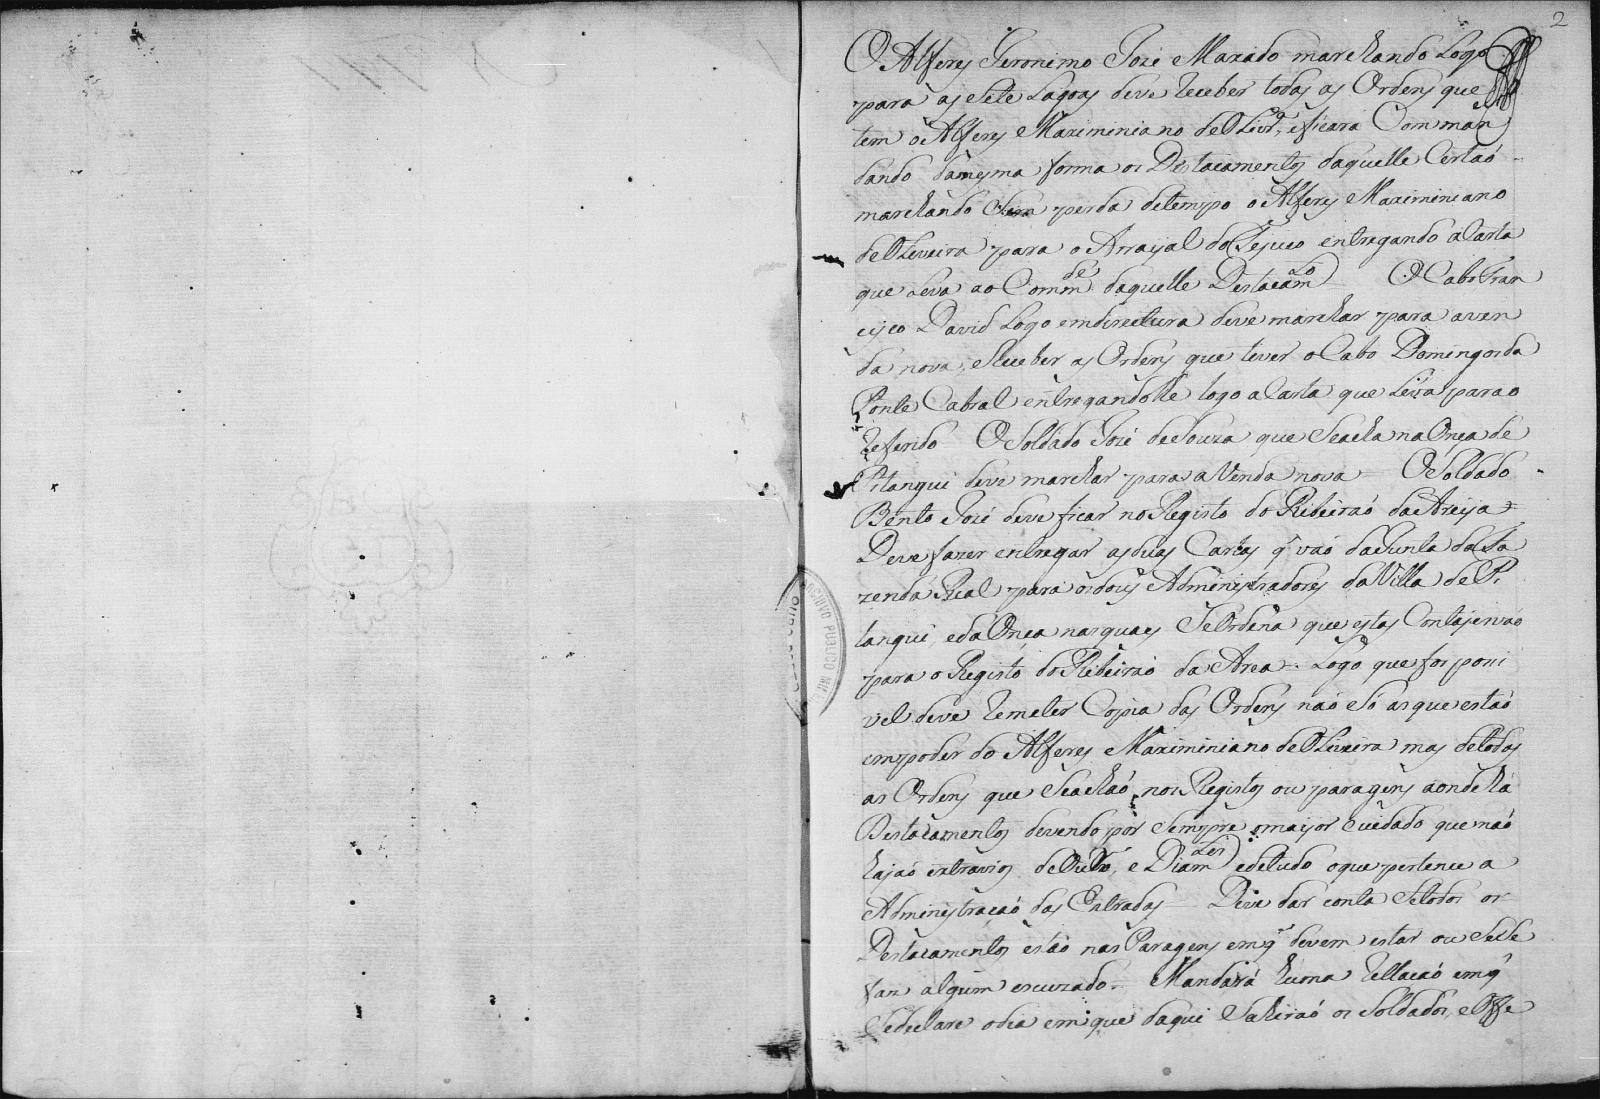 2
O Alferes Jeronimo Jozé Maxado marchando Logo
para as Sete Lagoas deve receber todas as Ordens que
tem o Alferes Maximiniano de Olivr.ª, e ficara Comman
dando da mesma forma os Destacamentos daquelle Certaó
marchando Sem perda de tempo o Alferes Maximiniano
de Oliveira para o Arrayal do Tejuco entregando a Carta
que Leva ao Comm.de daquelle Destacam.to O Cabo Fran
cisco David Logo em directura deve marchar para a ven
da nova, e Receber as Ordens que tiver o Cabo Domingos da
Ponte Cabral entregandolhe logo a Carta que Leva para o
referido O Soldado Jozé de Souza que Se acha na Onça de
Pitangui deve marchar para a Venda nova O Soldado
Bento Jozé deve ficar no Registo do Ribeiraó da Areya
Deve fazer entregar as duas Cartas q vaó da Junta da Fa
zenda Real para os dois Administradores da Villa de Pi
tangui, e da Onça nas quaes Se Ordena que estas Contajens vaó
para o Registo do Ribeiraó da Area. Logo que for possi
vel deve remeter Copia das Ordens naó Só as que estaó
em poder do Alferes Maximiniano de Oliveira mas de todas
as Ordens que Se achaó nos Registos ou paragens aonde há
Destacamentos devendo pôr Sempre o mayor Cuidado que naó
hajaó extravios de Ouro, e Diam.tes e de tudo o que pertence a
Administraçaó das Entradas Deve dar conta Se todos os
Destacamentos estaó nas Paragens em q devem estar ou Se Se
faz algum escuzado. Mandará huma Rellacaó em q
Se declare o dia em que daqui Sahiraó os Soldados, e Offe